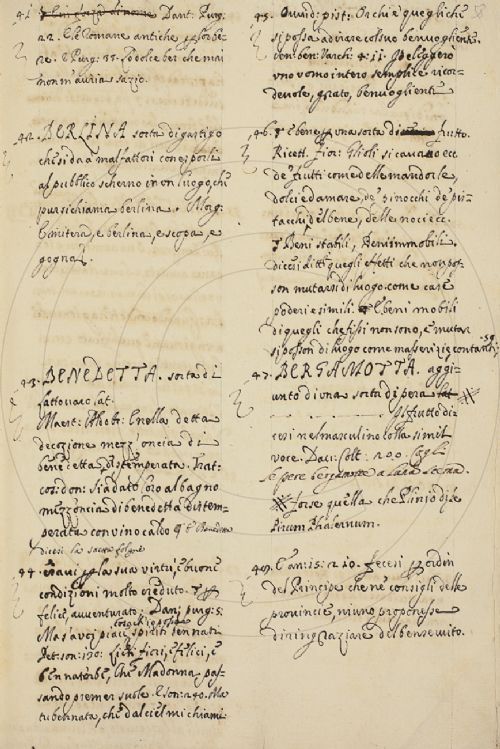 41. Dant: Purg.
22. E le Romane antiche per lor be-
re. E Purg: 33. Lo dolce ber che mai
non m'auria sazio.
42. BERLINA sorta di gastigo
che si dà a' malfattori con esporli
al pubblico scherno in un luogo, che
pur si chiama berlina. Morg:
e berlina, e scopa, e
gogna.
43. BENEDETTA. sorta di
lattovaro lat.
Maest: E nella detta
decozione mezz'oncia di
benedetta distemperata. Trat:
cos: don: sia dato loro al bagno
mezz'oncia di benedetta distem-
perata con vino caldo
dicesi la sacra
44. per la sua virtù, e buone
condizioni molto creduto. 
felici, avventurato. Dan: purg: 5.
Ma s'a voi piace
spiriti ben nati
Pet: son: 130: Lieti fiori, e felici, e
ben nate erbe, Che Madonna pas-
sando premer suole. E son: 240. Ma
tu ben nata, che dal ciel mi chiami
45. Ouuid: pist: Or chi è quegli che
si possa adirare col suo benuogliente.
ben: Varch: 4: 11. Peleggerò
uno uomo intero semplice ricor-
deuole, grato, benuogliente
46. E bene una sorta di frutto.
Ricett: Fior: Glioli si cauano ecc
de' frutti come delle mandorle,
dolci ed amare, de' pinocchi de' pis-
tacchi, del bene, delle noci ecc.
Beni stabili, Beni immobili
dicesi di tutti quegli effetti che non pos-
son mutarsi di luogo. come case
poderi e simili. E beni mobili
di quegli che fissi non sono, e mutar
si posson di luogo come masserizie contanti,
47. BERGAMOTTA. aggi-
unto di una sorta di pera
frutto di-
cesi nel masculino colla simil
voce. Dau: Colt: 200. Cogli
le pere
forse quella che Plinio disse
Pirum Phalernum.
49. Tan: 15: 210. Fecesi per ordin
del Principe che ne' consigli delle
provincie, niuno proponesse
di ringraziare del ben seruito.